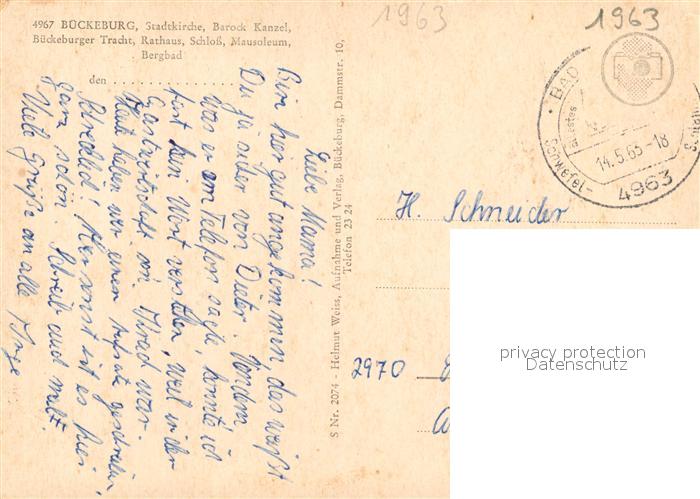 1963
1963
4967 BÜCKEBURG, Stadtkirche, Barock Kanzel,
Bückeburger Tracht, Rathaus, Schloß, Mausoleum,
Bergbad
den
Liebe Mama!
Bin hier gut angekommen, das weißt
Du ja sicher von Dieter. Von dem
was er am Telefon sagte, konnte ich
fast kein Wort verstehen, weil in der
Gastwirtschaft ein war.
Heut haben wir einen Aufsatz geschrieben.
Sonst ist es hier
ganz schön. Schreib auch mal!
Viele Grüße an alle Inge
S Nr. 2074 - Helmut Weiss, Aufnahme und Verlag, Bückeburg, Dammstr. 10,
Telefon 23 24
BAD
ältestes
Schwefel-
14.5.65-18
4963
H. Schneider
2970
privacy protection
Datenschutz